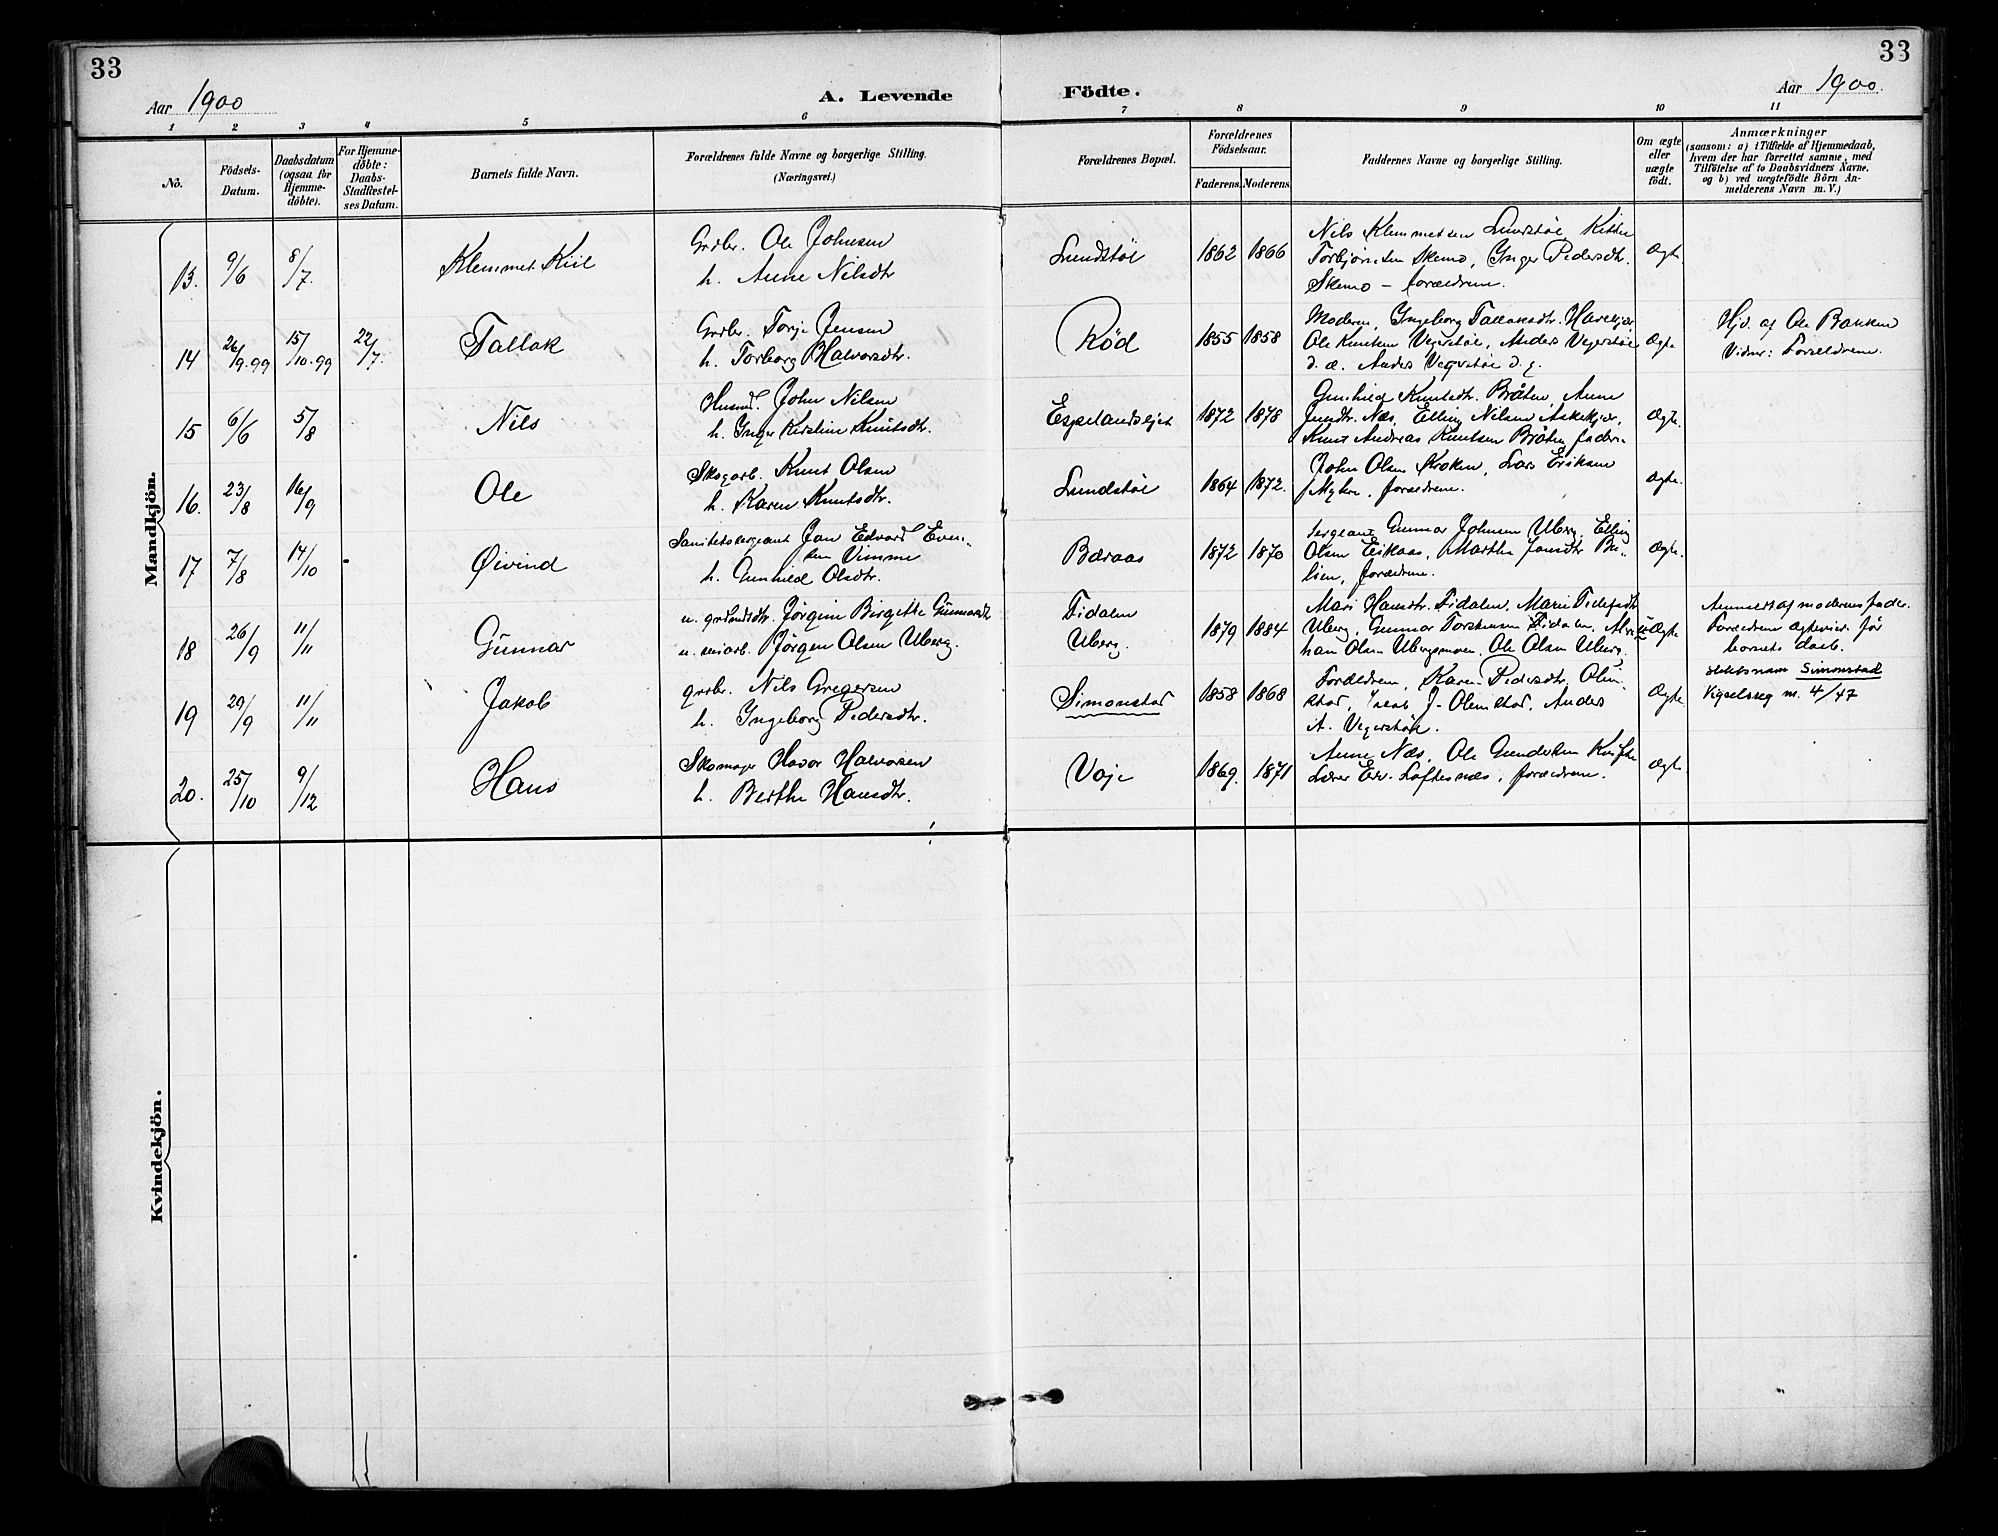 33
33
Aar 1900
A. Levende Födte.
Aar 1900.
1 2 3 4 5 6 7 8 9 10 11
No.
Födsels-
Datum.
Daabsdatum
(ogsaa for
Hjemme-
döbte).
For Hjemme-
döbte:
Daabs-
Stadfæstel-
ses Datum.
Barnets fulde Navn.
Forældrenes fulde Navne og borgerlige Stilling.
(Næringsvei.)
Forældrenes Bopæl.
Forældrenes
Födselsaar.
Faderens. Moderens.
Faddernes Navne og borgerlige Stilling.
Om ægte
eller
uægte
født.
Anmærkninger
(saasom: a) i Tilfælde af Hjemmedaab,
hvem der har forrettet samme, med
Tilföielse af to Daabsvidners Navne,
og b) ved uægtefödte Börn An-
melderens Navn m. V.)
Mandkjön.
13. 9/6 8/7. Klemmet Kiil
Grdbr. Ole Johnsen
h. Anne Nilsdtr
Lundstøl 1862 1866
Nils Klemmetsen Lundstøl
Torbjørnsen Skemo, Ynger Pedersdtr.
Skemo – forældrene.
Ægte.
14 26/9.99 15/10.99 22/7. Tallak
Grdbr. Torje Jensen
h. Torborg Halvorsdtr.
Rød 1855 1858
Moderen, Ingeborg Tallaksdtr.
Ole Knutsen Vegerstøl, Anders Vegerstøl
d. æ. Anders Vegerstøl d. y.
Ægte
Hjd. af Ole Bakken
Vidner: Forældrene.
15 6/6 5/8 Nils
Husmd. John Nilsen
h. Inger Kirstine Knutsdtr.
Espelandslijet 1872 1878
Gunhild Knutsdtr. Bråten, Anne
Jensdtr. Næs, Elling Nilsen Askekjær,
Knut Andreas Knutsen Bråten
Ægte.
16. 23/8 16/9 Ole
Skogarb. Knut Olsen
h. Karen Knutsdtr.
Lundstøl 1864 1872.
John Olsen Kroken, Lars Eriksen
Myhre, forældrene.
Ægte.
17 7/8 14/10 Øivind
Sanitetssergeant Jan Edvard Even-
sen Vimme
h. Gunhild Olsdtr.
Baraas 1872 1870
Sergeant Gunnar Johnsen Uberg, Elling
Olsen Eikaas, Marthe Jonsdtr
lien, forældrene.
Ægte.
18 26/9 11/11 Gunnar
u. Jørgine Birgitte Gunnarsdtr
u. Jørgen Olsen Uberg.
Fidalen
Uberg. 1879 1884
Mari Hansdtr. Fidalen, Marie
Uberg, Gunnar Torstensen Fidalen,
ham Olsen Ubergsmoen, Ole Olsen Uberg.
Ægte
Anmeldt af moderens fader.
Forældrene ægteviet før
barnets daab.
19 29/9 11/11 Jakob
grdbr. Nils Gregersen
h. Ingeborg Pedersdtr.
Simonstad 1858 1868
Forældrene, Karen Pedersdtr. Olim-
stad, Jacob J. Olimstad, Anders
A. Vegerstøl.
Ægte.
Slektsnavn Simonstad
Vigselsreg m. 4/47
20. 25/10 9/12 Hans
Skomager Havor Halvorsen
h. Berthe Hansdtr.
Voje 1869. 1871
Anne Næs, Ole Gundersen
Lærer Edv. Loftesnæs, forældrene.
Ægte.
Kvindekjön.